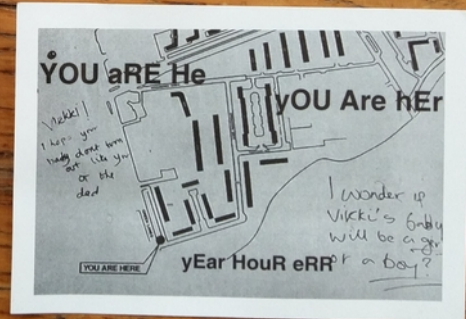 YOU aRE He
yOU Are hEr
Vikki!
I hope your
baby dont turn
out like you
or the
dad
I wonder if
Vikki's baby
will be a girl
or a boy?
YOU ARE HERE
yEar HouR eRR